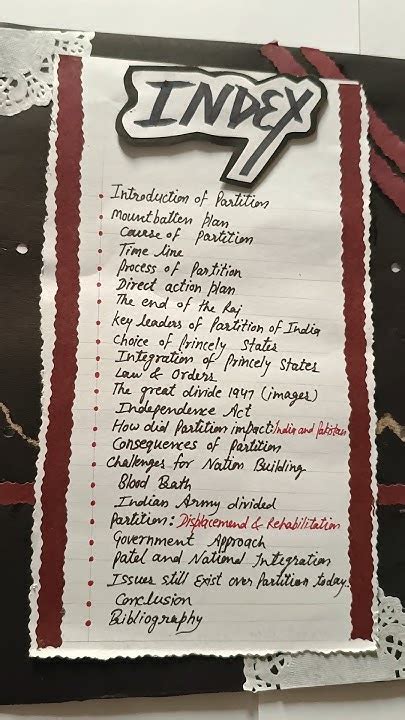 INDEX
Introduction of Partition
Mountbatten plan
Cause of Partition
Time line
Process of Partition
Direct action plan
The end of the Raj
key leaders of Partition of India
Choice of Princely States
Integration of Princely States
Law & Orders
The great divide 1947 (images)
Independence Act
How did Partition impact: India and Pakistan
Consequences of Partition
Challenges for Nation Building
Blood Bath
Indian Army divided
Partition: Displacement & Rehabilitation
Government Approach
Patel and National Integration
Issues still Exist over Partition today.
Conclusion
Bibliography